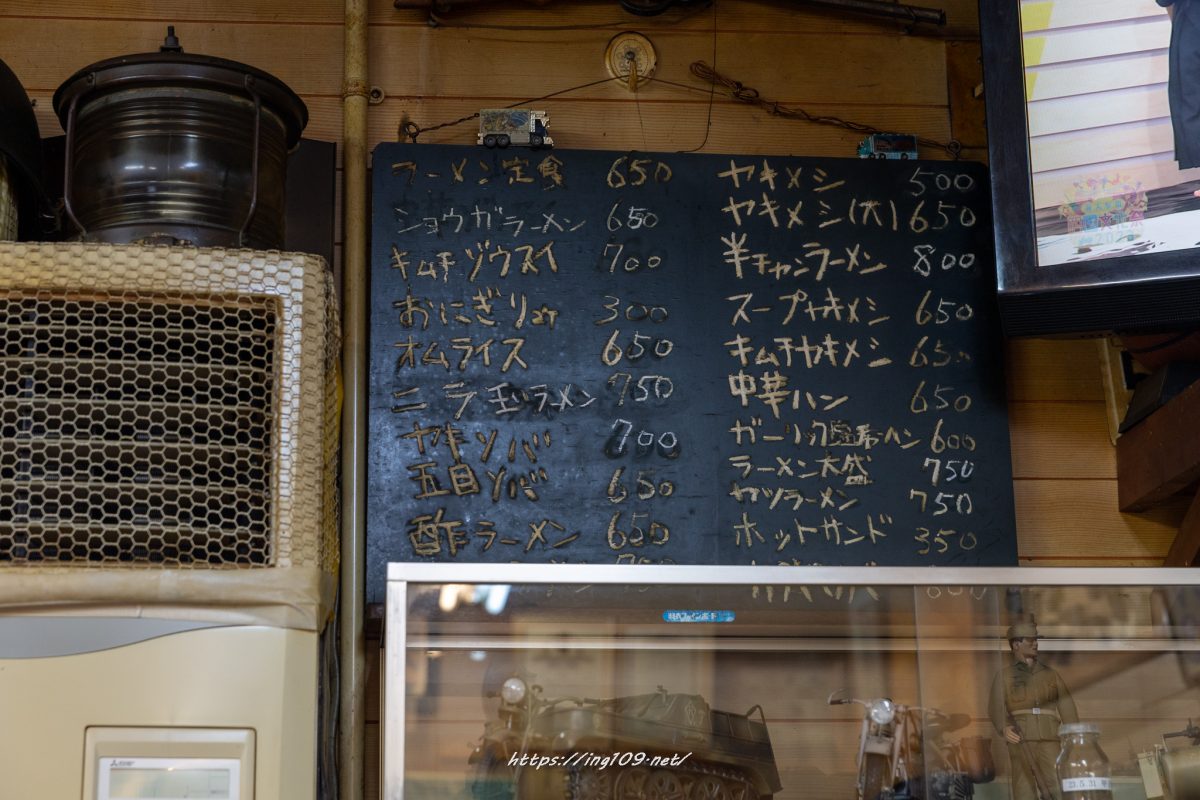 ラーメン定食 650
ショウガラーメン 650
キムチゾウスイ 700
おにぎり 300
オムライス 650
ニラ玉ラメン 750
ヤキソバ 700
五目ソバ 650
酢ラーメン 650
ヤキメシ 500
ヤキメシ(大) 650
半チャンラーメン 800
スープヤキメシ 650
キムチヤキメシ 650
中華ハン 650
ガーリック ハン 600
ラーメン大盛 750
カツラーメン 750
ホットサンド 350
https://ing109.net/